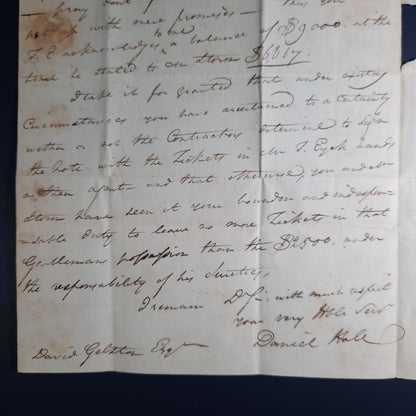 pray don't
not up with mere promises
T. E acknowledges to me a balance of $9000. at the
time he stated to the attorn $6667.
I take it for granted that under existing
Circumstances you have ascertained to a certainty
wether or not the Contractors determine to
the hote with the Tickets in T. Eyck hands
as their agent and that otherwise, you and
attorn have seen it your bounden and indispen-
-sible duty to leave no more Tickets in that
Gentlemans possession than the $2500. under
the responsability of his sureties,
I remain Dr Sir, with much respect
your very Hble Serv
David Gelston Esqr Daniel Hale